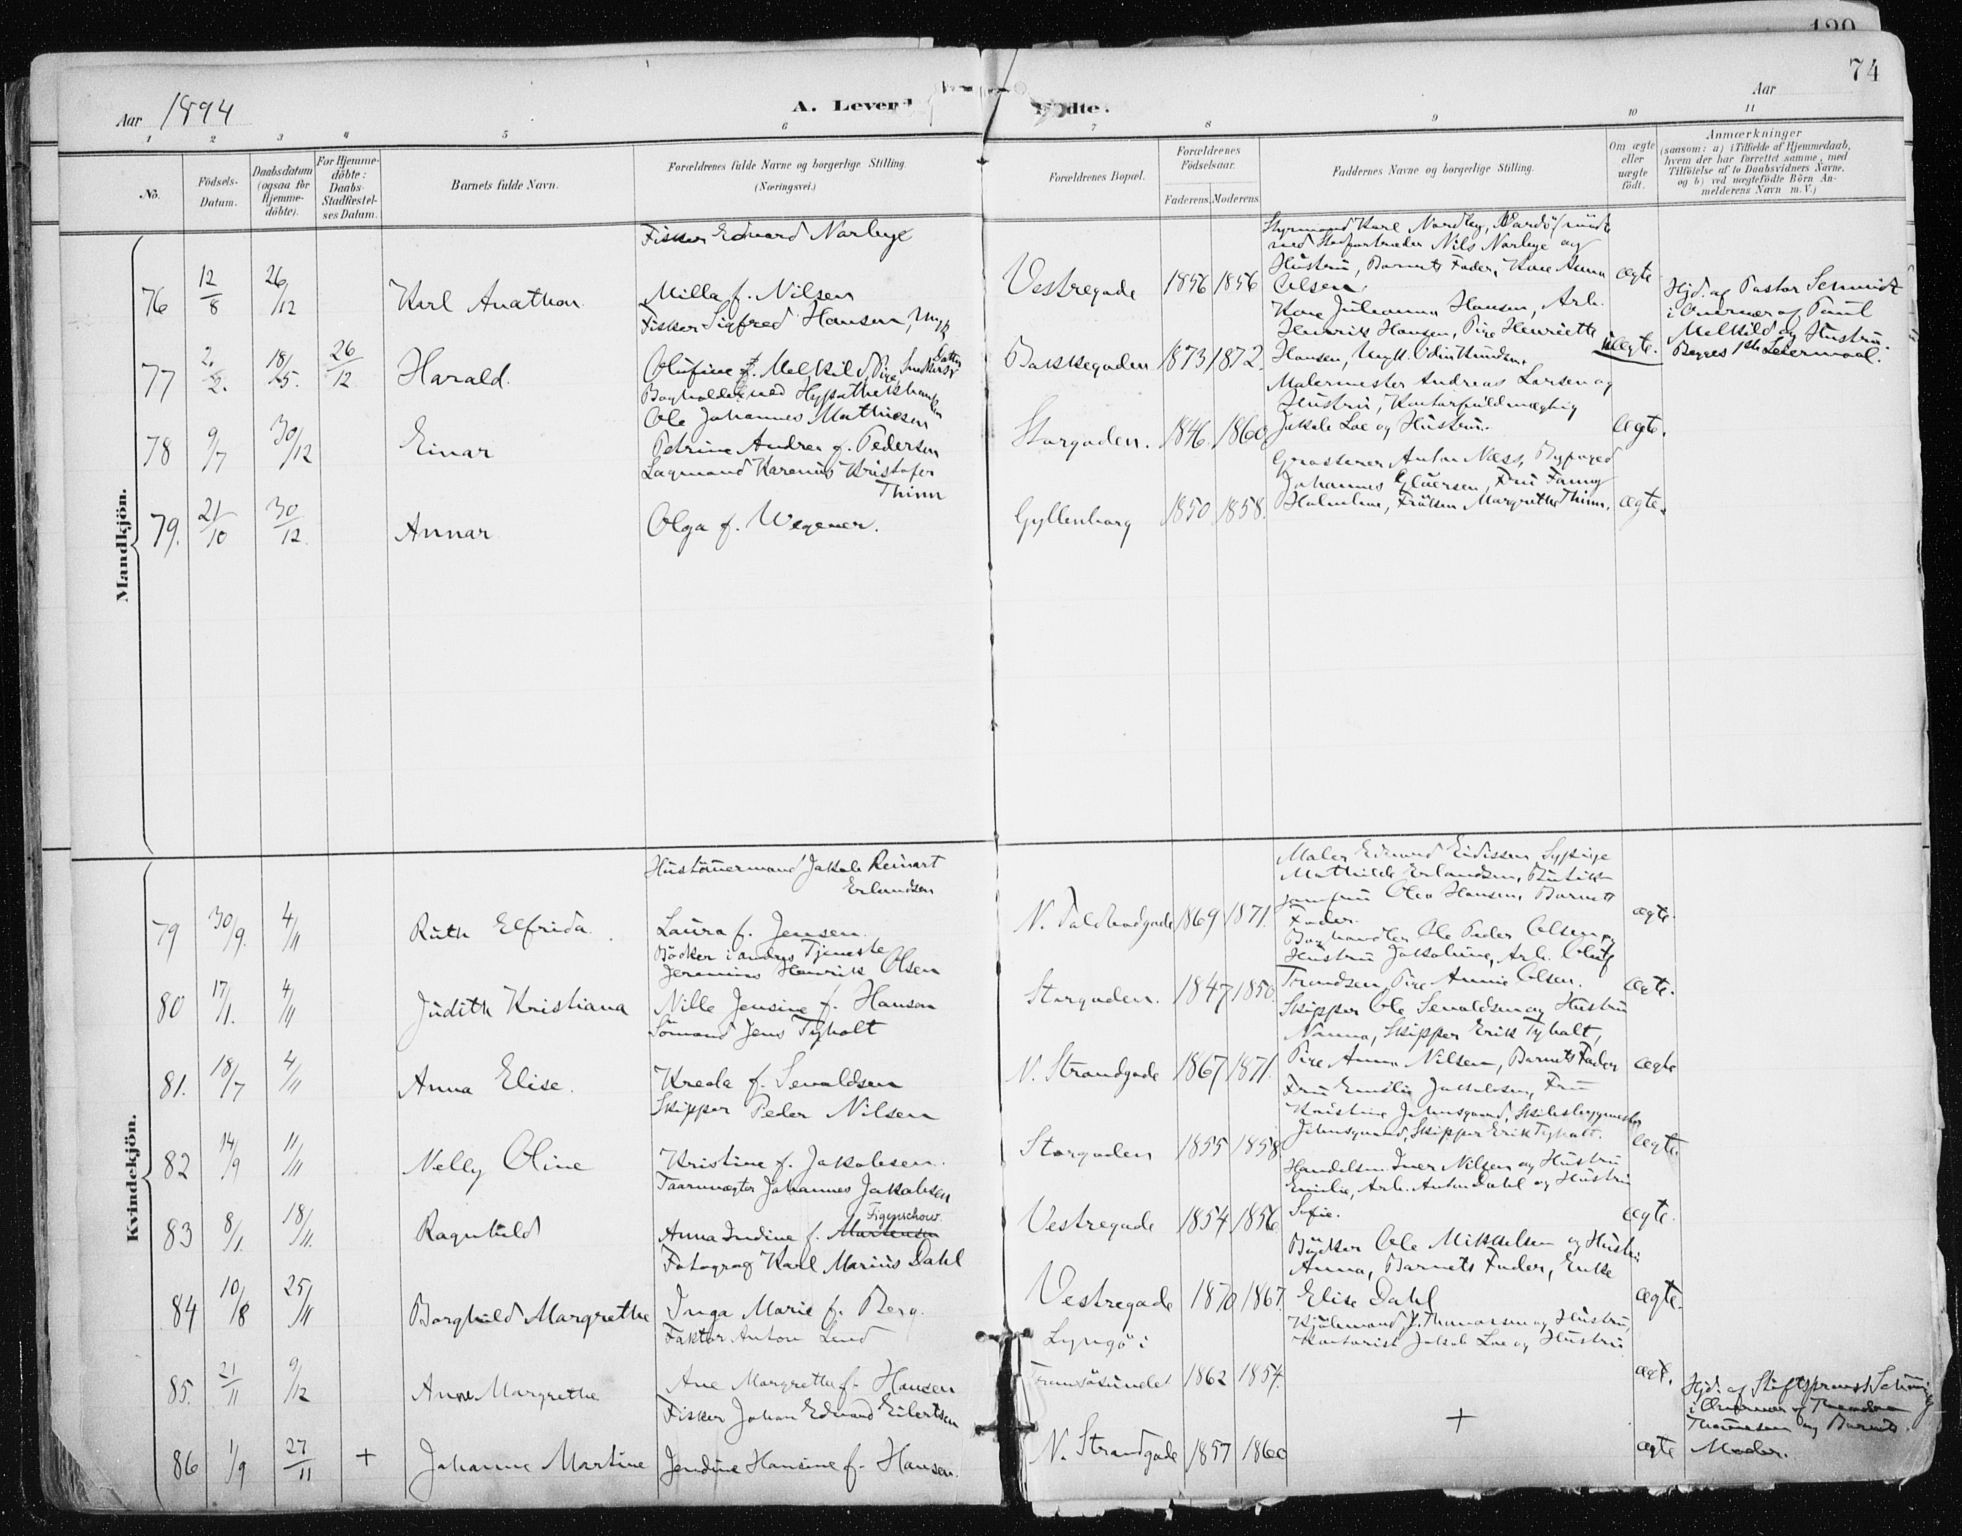 120
74
Aar 1894
A. Levend Fødte.
Aar
1 2 3 4 5 6 7 8 9 10 11
No.
Födsels-Datum.
Daabsdatum (ogsaa for Hjemme-döbte).
For Hjemme-döbte: Daabs-Stadfæstel-ses Datum.
Barnets fulde Navn.
Forældrenes fulde Navne og borgerlige Stilling. (Næringsvei.)
Forældrenes Bopæl.
Forældrenes Födselsaar.
Faderens. Moderens.
Faddernes Navne og borgerlige Stilling.
Om ægte eller uægte födt.
Anmærkninger
(saasom: a) i Tilfælde af Hjemmedaab, hvem der har forrettet samme, med Tilföielse af to Daabsvidners Navne, og b) ved uægtefödte Börn An-melderens Navn m. V.)
Mandkjön.
Fisker Edvard Narbye
76 12/8 26/12 Karl Anathon Milla f. Nilsen Vestregade 1856 1856 ægte
Hustru, Barnets Fader, Kone Anna Olsen
Fisker Sigfred Hansen, Ungk.
77 2/2. 18/5. 26/12 Harald. Olufine Melkild, Pige Bakkegaden 1873 1872. uægte.
Kone Julianna Hansen, Arb. Henrik Hansen, Pige Henriette Hansen, Ungk.
Hjd. af Pastor Schmidt
Melkild og Hustru.
Begges 1ste Leiermaal.
Bogholder ved Hypothekbanken
Ole Johannes Mathiesen
78 9/7 30/12 Einar Petrine Andrea f. Pedersen Storgaden. 1846. 1860 ægte.
Malermester Andreas Larsen og Hustru, Kontorfuldmægtig Jakob Loe og Hustru.
Lagmand Karenus Kristofer Thinn
79. 21/10 30/12. Annar Olga f. Wegener. Gyllenborg 1850 1858. ægte.
Grosserer Anton Næss, Byfoged Johannes Gløersen, Fru Fanny Holmboe, Frøken Margrethe Thinn.
Kvindekjön.
Hustömermand Jakob Reinart Erlandsen
79 30/9. 4/11 Ruth Elfrida. Laura f. Jensen. 1869 1871. ægte.
Maler Edvard Eidissen, Sypige Mathilde Erlandsen, Butik-jomfru Olea Hansen, Barnets Fader.
Böcker i andres Tjeneste
Jeremias Henrik Olsen
80 17/1. 4/11 Judith Kristiana Nille Jensine f. Hansen Storgaden. 1847 1850. ægte.
Ole Peder Olsen og Hustru Jakobine, Arb. Oluf Trondsen, Pige Annie Olsen.
Sömand Jens Tyholt
81. 18/7 4/11 Anna Elise. Kreda f. Sevaldsen N. Strandgade 1867 1871. ægte
Skipper Ole Sevaldsen og Hustru Nanna, Skipper Erik Tyholt, Pige Anna Nilsen, Barnets Fader
Skipper Peder Nilsen
82 14/9 11/11 Nelly Oline Kristine f. Jakobsen. Storgaden 1855 1858 ægte.
Fru Emilie Jakobsen, Fru Kristine Johnsgaard, Skibsbyggmester Johnsgaard, Skipper Erik Tyholt.
Taarnvægter Johannes Jakobsen
Figenschow.
83 8/1. 18/11. Ragnhild Anna Indine f. Mortensen Vestregade 1854. 1856 ægte.
Handelsm. Iver Nilsen og Hustru Emilie, Arb. Anton Dahl og Hustru Sofie.
Fotograf Karl Marius Dahl
84 10/8 25/11 Borghild Margrethe Inga Marie f. Berg. Vestregade 1870 1867. ægte.
Bödker Ole Mikkelsen og Hustru Anna, Barnets Fader, Enke Elise Dahl
Faktor Anton Lind
85. 21/11 9/12 Anne Margrethe Ane Margrethe f. Hansen Lyngö i Tromsösundet 1862 1854. ægt.
Thomassen og Hustru, Kontorist Jakob Loe og Hustru
Fisker Johan Edvard Eilertsen
86 1/9 27/11 + Johanne Martine Jendine Hansine f. Hansen. N. Strandgade 1857 1860 + ægte
Hjd. af Stiftsprovst
og Barnets Moder.